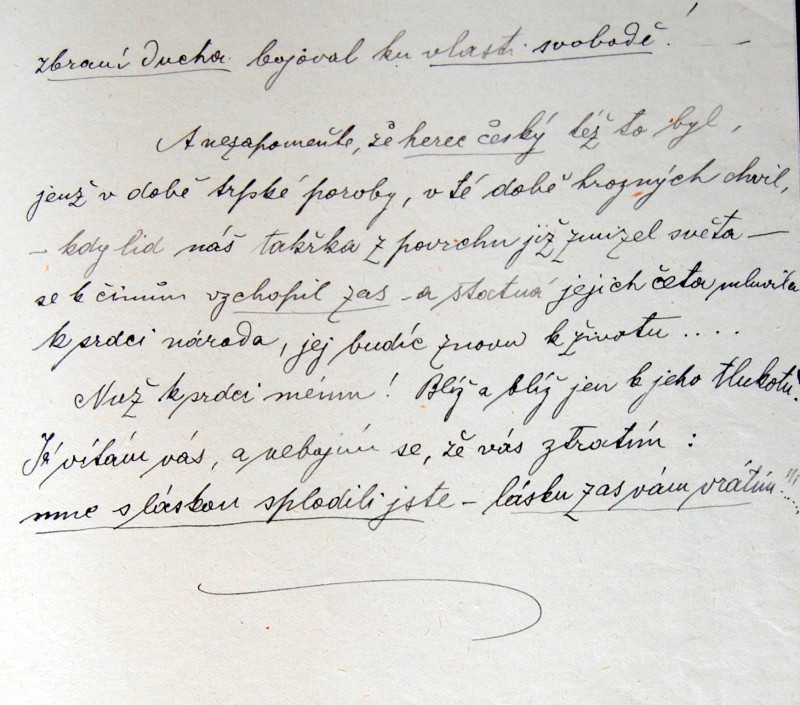 zbraní ducha bojoval ku vlasti svobodě! —
A nezapomeňte, že herec český též to byl,
jenž v době trpké poroby, v té době hrozných chvil,
– kdy lid náš takřka z povrchu již zmizel světa —
se k činům vzchopil zas – a statná jejich četa mluvila
k srdci národa, jej budíc znovu k životu ....
Nuž k srdci mému! Blíž a blíž jen k jeho tlukotu.
Já vítám vás, a nebojím se, že vás ztratím:
mne s láskou splodili jste – lásku zas vám vrátím